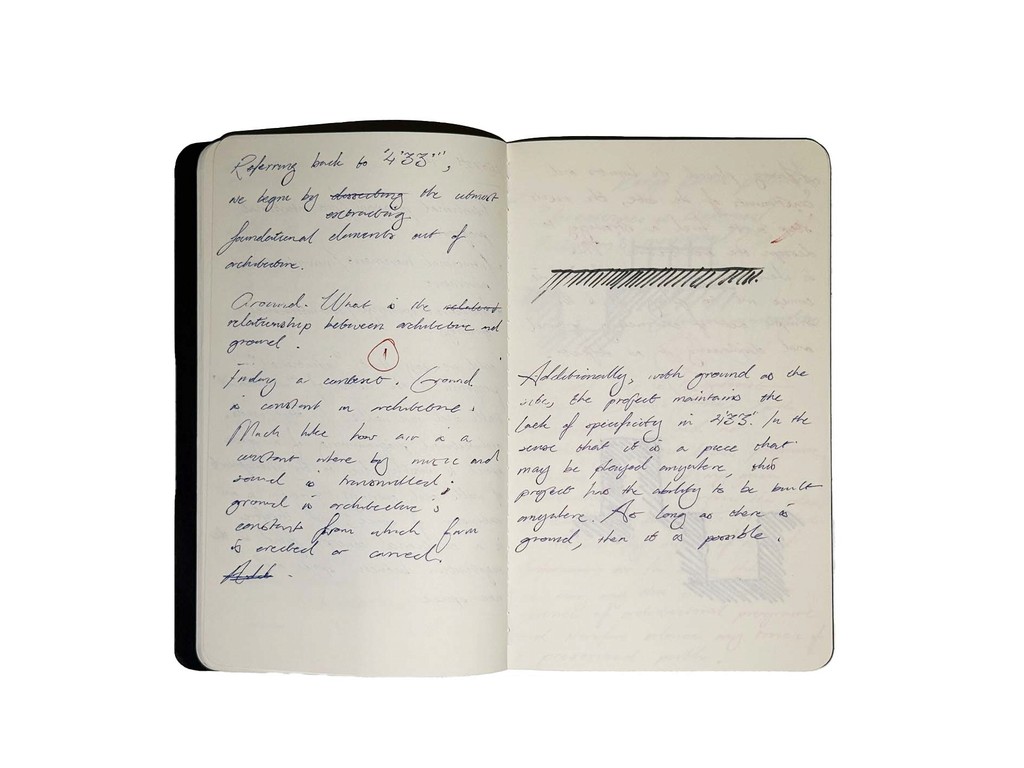 Referring back to "4'33"",
we begin by dissecting the utmost
extracting
foundational elements out of
architecture.
Ground. What is the related
relationship between architecture and
ground.
1
Finding a context. Ground
is constant in architecture.
Much like how air is a
constant where by music and
sound is transmitted;
ground is architecture's
constant from which form
is erected or carved.
Addi.
Additionally, with ground as the
site, the project maintains the
lack of specificity in 4'33". In the
sense that it is a piece that
may be played anywhere, this
project has the ability to be built
anywhere. As long as there is
ground, then it is possible.